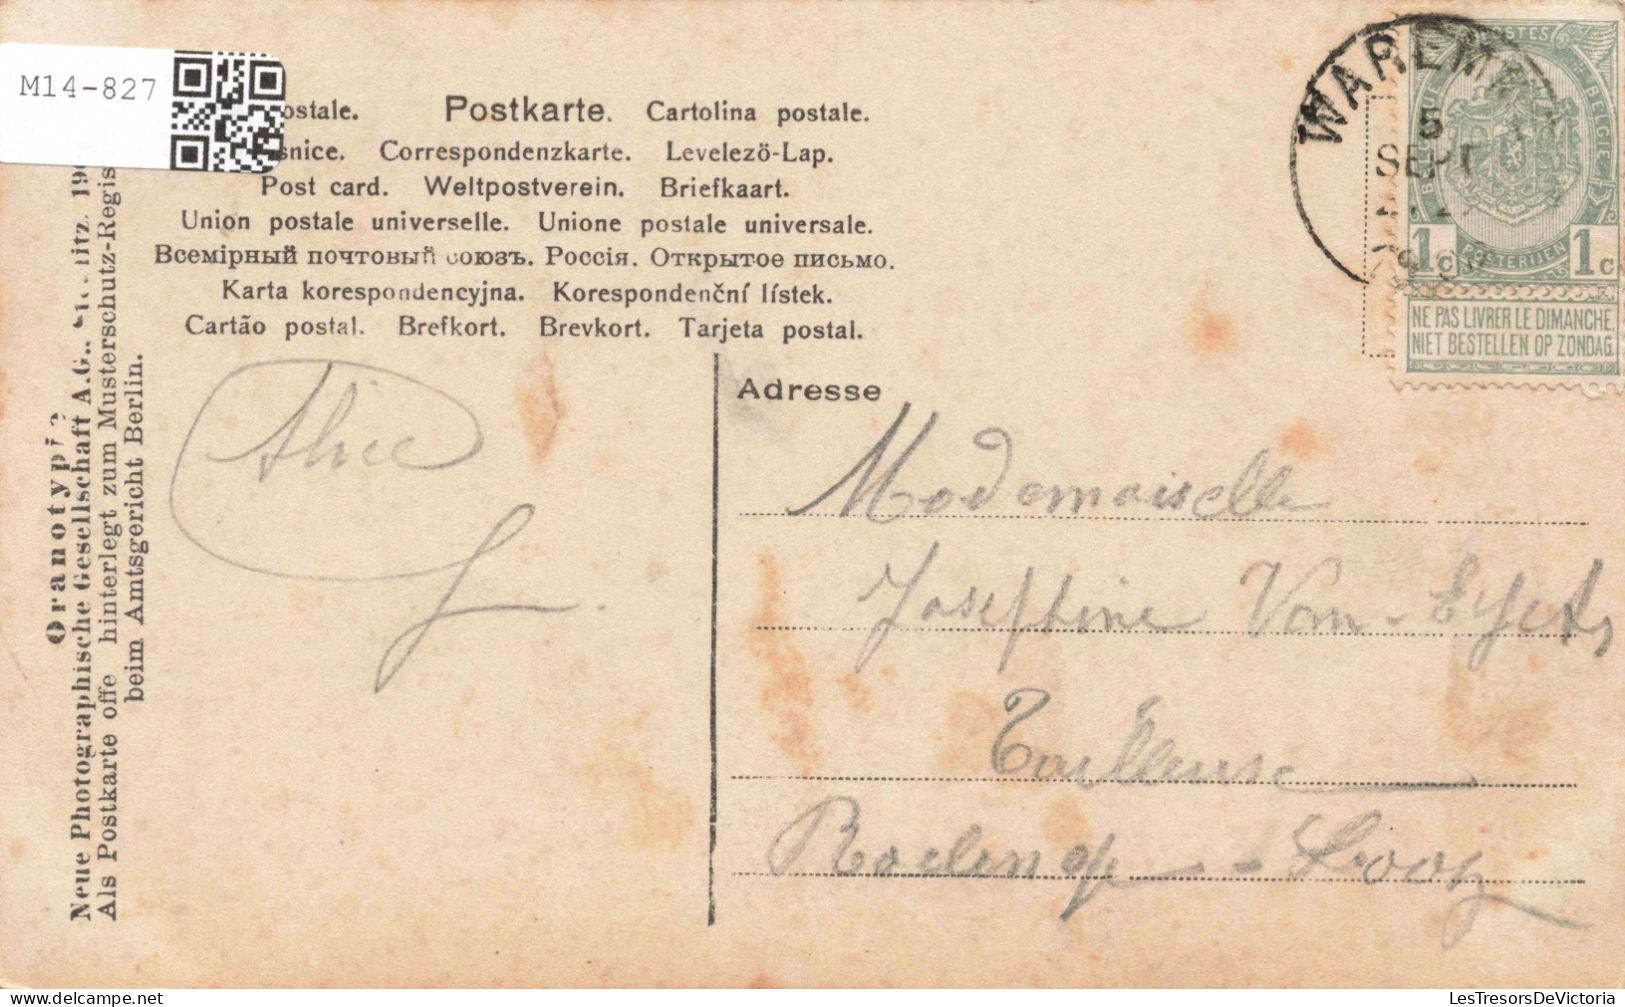 M14-827
ostale. Postkarte. Cartolina postale.
snice. Correspondenzkarte. Levelezö-Lap.
Post card. Weltpostverein. Briefkaart.
Union postale universelle. Unione postale universale.
Всемірный почтовый союзъ. Россія. Открытое письмо.
Karta korespondencyjna. Korespondenční lístek.
Cartão postal. Brefkort. Brevkort. Tarjeta postal.
Oranotypie
Neue Photographische Gesellschaft A.G., 19
Als Postkarte offe hinterlegt zum Musterschutz-Regis
beim Amtsgericht Berlin.
Alice
Adresse
Mademoiselle
Josephine Van-Eycts
Tailleuse
Roclenge-Looz
WAREMME
5
SEPT
POSTES
BELGIQUE BELGIE
POSTERIJEN
1c 1c
NE PAS LIVRER LE DIMANCHE.
NIET BESTELLEN OP ZONDAG.
delcampe.net
LesTresorsDeVictoria